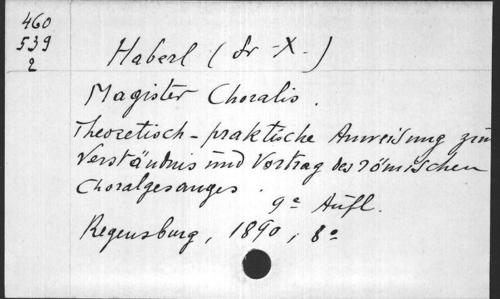 460
539
2
Haberl (Fr. X.)
Magister Choralis.
Theoretisch-praktische Anweisung zum
Verständnis und Vortrag des römischen
Choralgesanges.
9e Aufl.
Regensburg, 1890, 8o